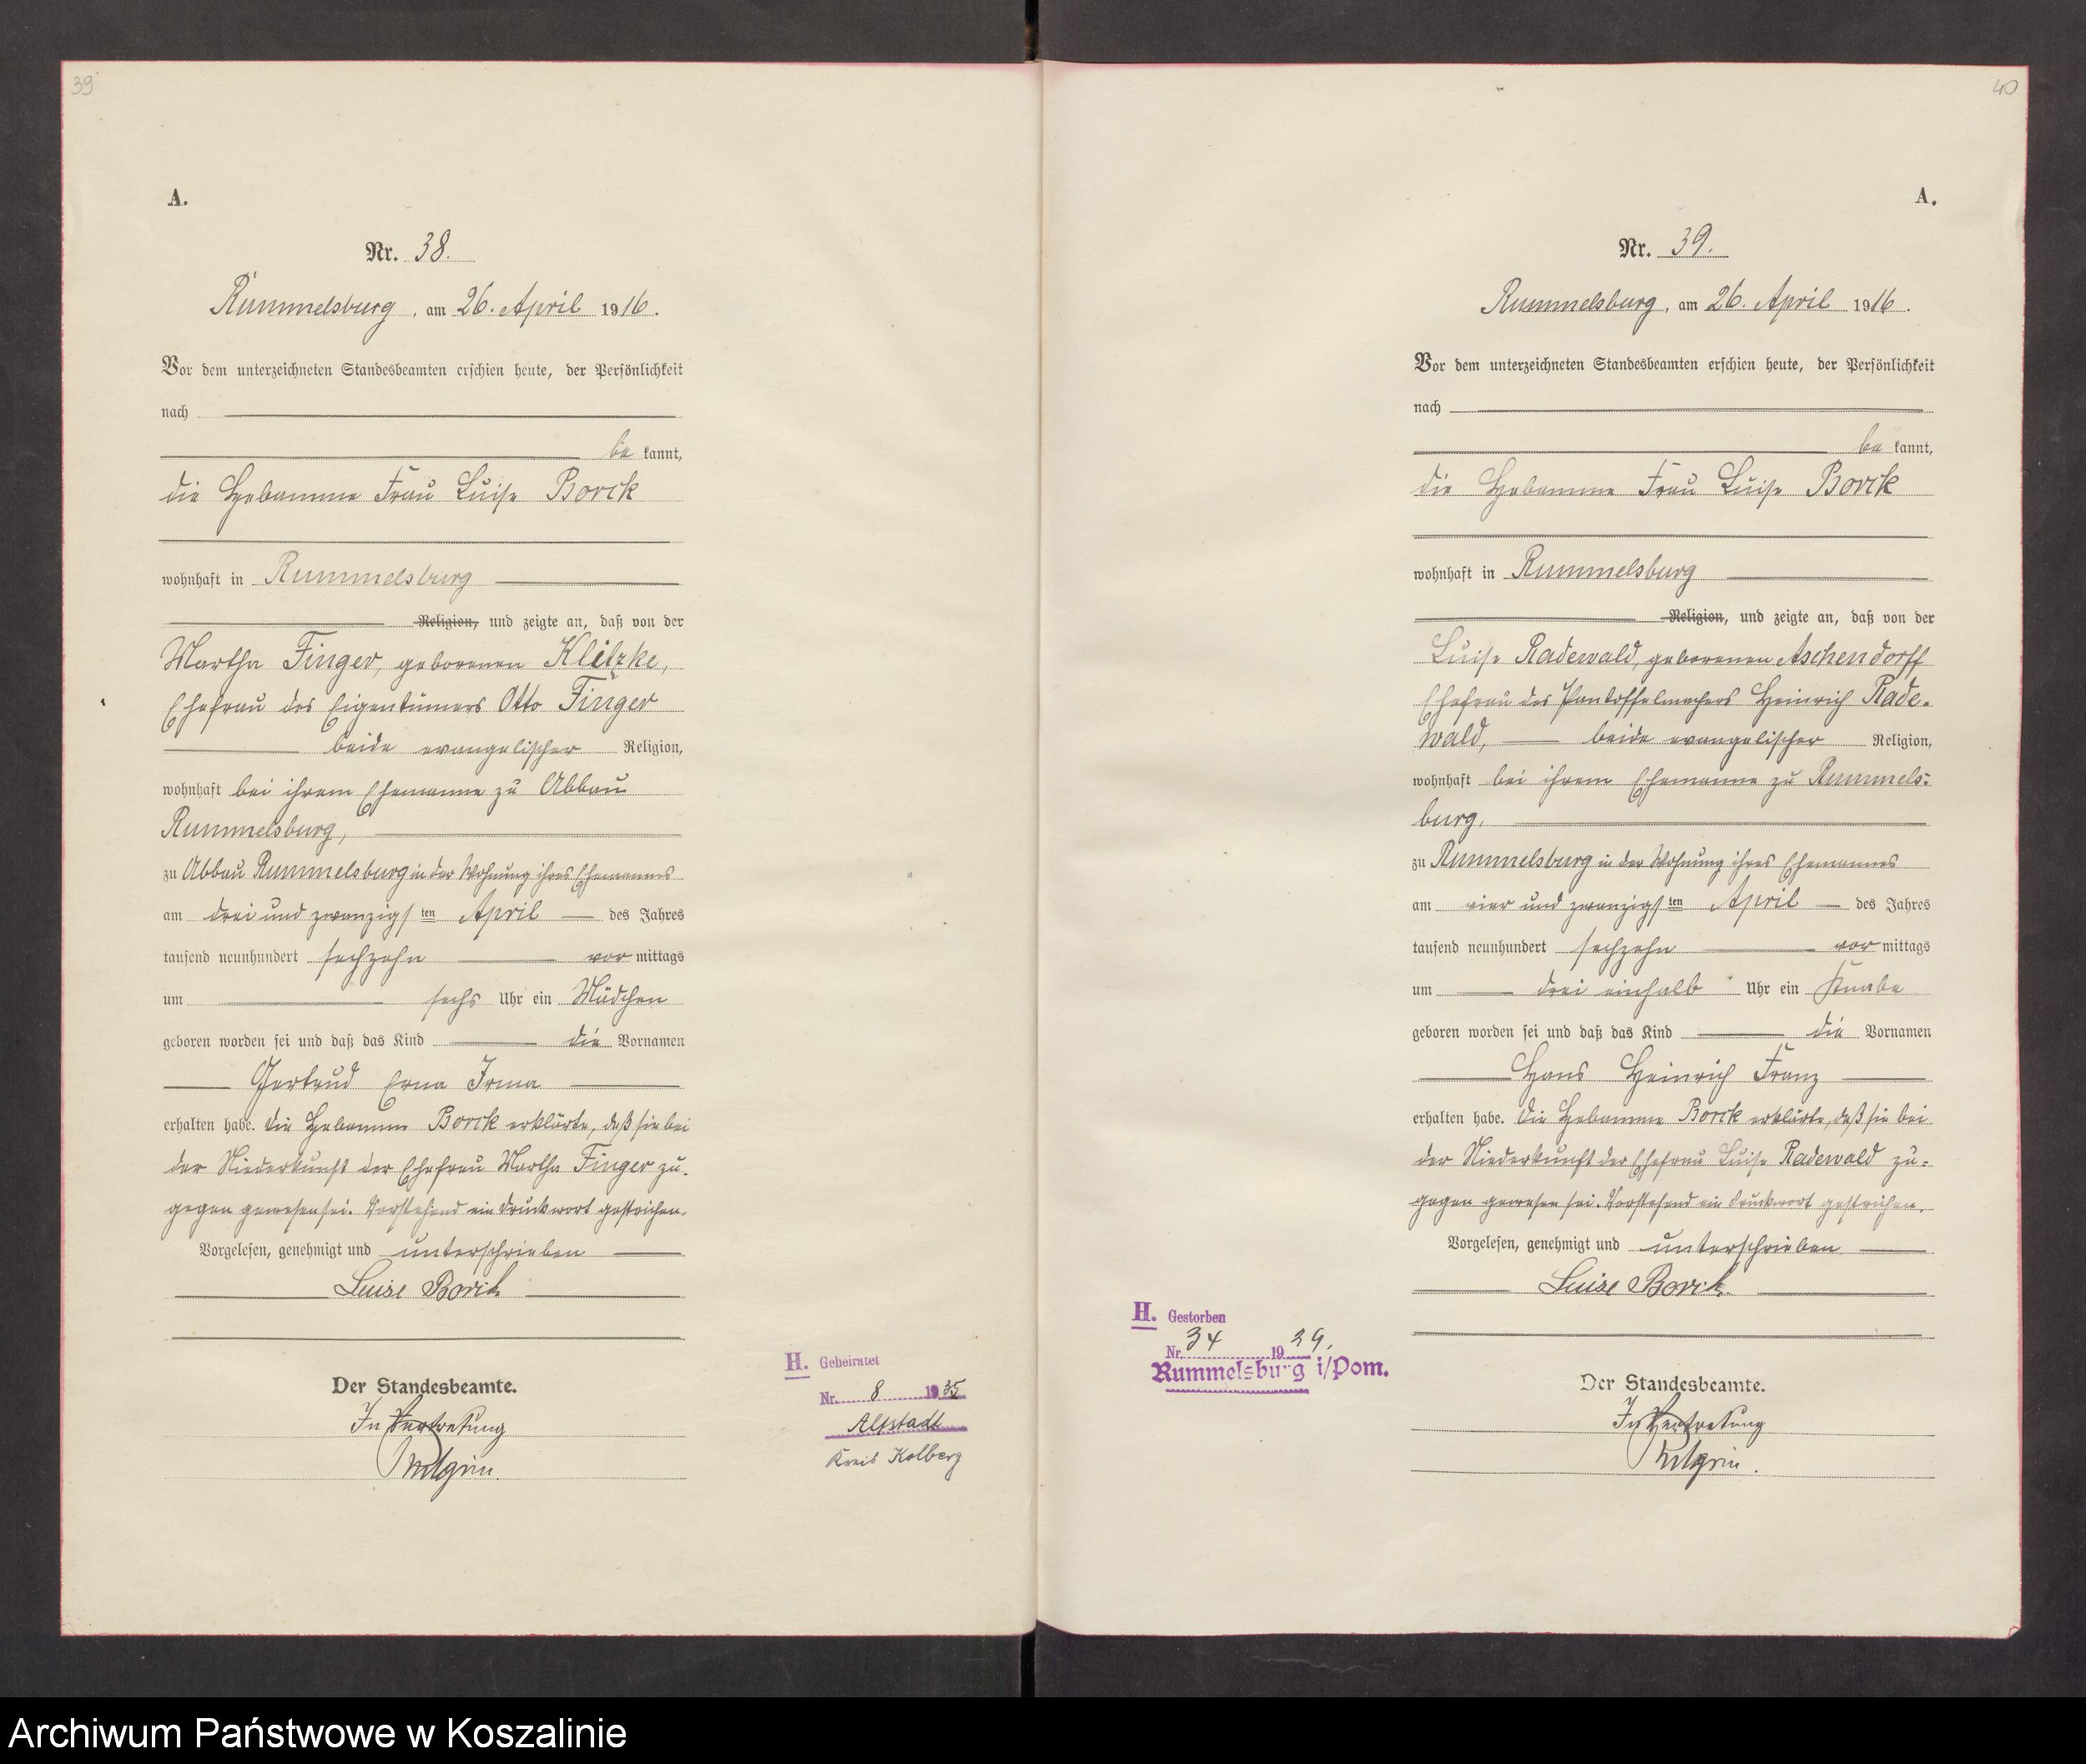 39
A.
Nr. 38.
Rummelsburg, am 26. April 1916.
Vor dem unterzeichneten Standesbeamten erschien heute, der Persönlichkeit
nach
be kannt,
die Hebamme Frau Luise Borck
wohnhaft in Rummelsburg
Religion, und zeigte an, daß von der
Martha Finger, geborenen Klitzke,
Ehefrau des Eigentümers Otto Finger
beide evangelischer Religion,
wohnhaft bei ihrem Ehemanne zu Abbau
Rummelsburg,
zu Abbau Rummelsburg in der Wohnung ihres Ehemannes
am drei und zwanzigsten April des Jahres
tausend neunhundert sechzehn vormittags
um sechs Uhr ein Mädchen
geboren worden sei und daß das Kind die Vornamen
Gertrud Erna Irma
erhalten habe. Die Hebamme Borck erklärte, daß sie bei
der Niederkunft der Ehefrau Martha Finger zu-
gegen gewesen sei. Vorstehend ein Druckwort gestrichen.
Vorgelesen, genehmigt und unterschrieben
Luise Borck
Der Standesbeamte.
In Vertretung
H. Geheiratet
Nr. 8 1935
Altstadt
Kreis Kolberg
40
A.
Nr. 39.
Rummelsburg, am 26. April 1916.
Vor dem unterzeichneten Standesbeamten erschien heute, der Persönlichkeit
nach
be kannt,
die Hebamme Frau Luise Borck
wohnhaft in Rummelsburg
Religion, und zeigte an, daß von der
Luise Radewald, geborenen Aschendorff
Ehefrau des Pantoffelmachers Heinrich Rade-
wald, beide evangelischer Religion,
wohnhaft bei ihrem Ehemanne zu Rummels-
burg,
zu Rummelsburg in der Wohnung ihres Ehemannes
am vier und zwanzigsten April des Jahres
tausend neunhundert sechzehn vormittags
um drei einhalb Uhr ein Knabe
geboren worden sei und daß das Kind die Vornamen
Hans Heinrich Franz
erhalten habe. Die Hebamme Borck erklärte, daß sie bei
der Niederkunft der Ehefrau Luise Radewald zu-
gegen gewesen sei. Vorstehend ein Druckwort gestrichen.
Vorgelesen, genehmigt und unterschrieben
Luise Borck.
H. Gestorben
Nr. 34 1939.
Rummelsburg i/Pom.
Der Standesbeamte.
In Vertretung
Archiwum Państwowe w Koszalinie